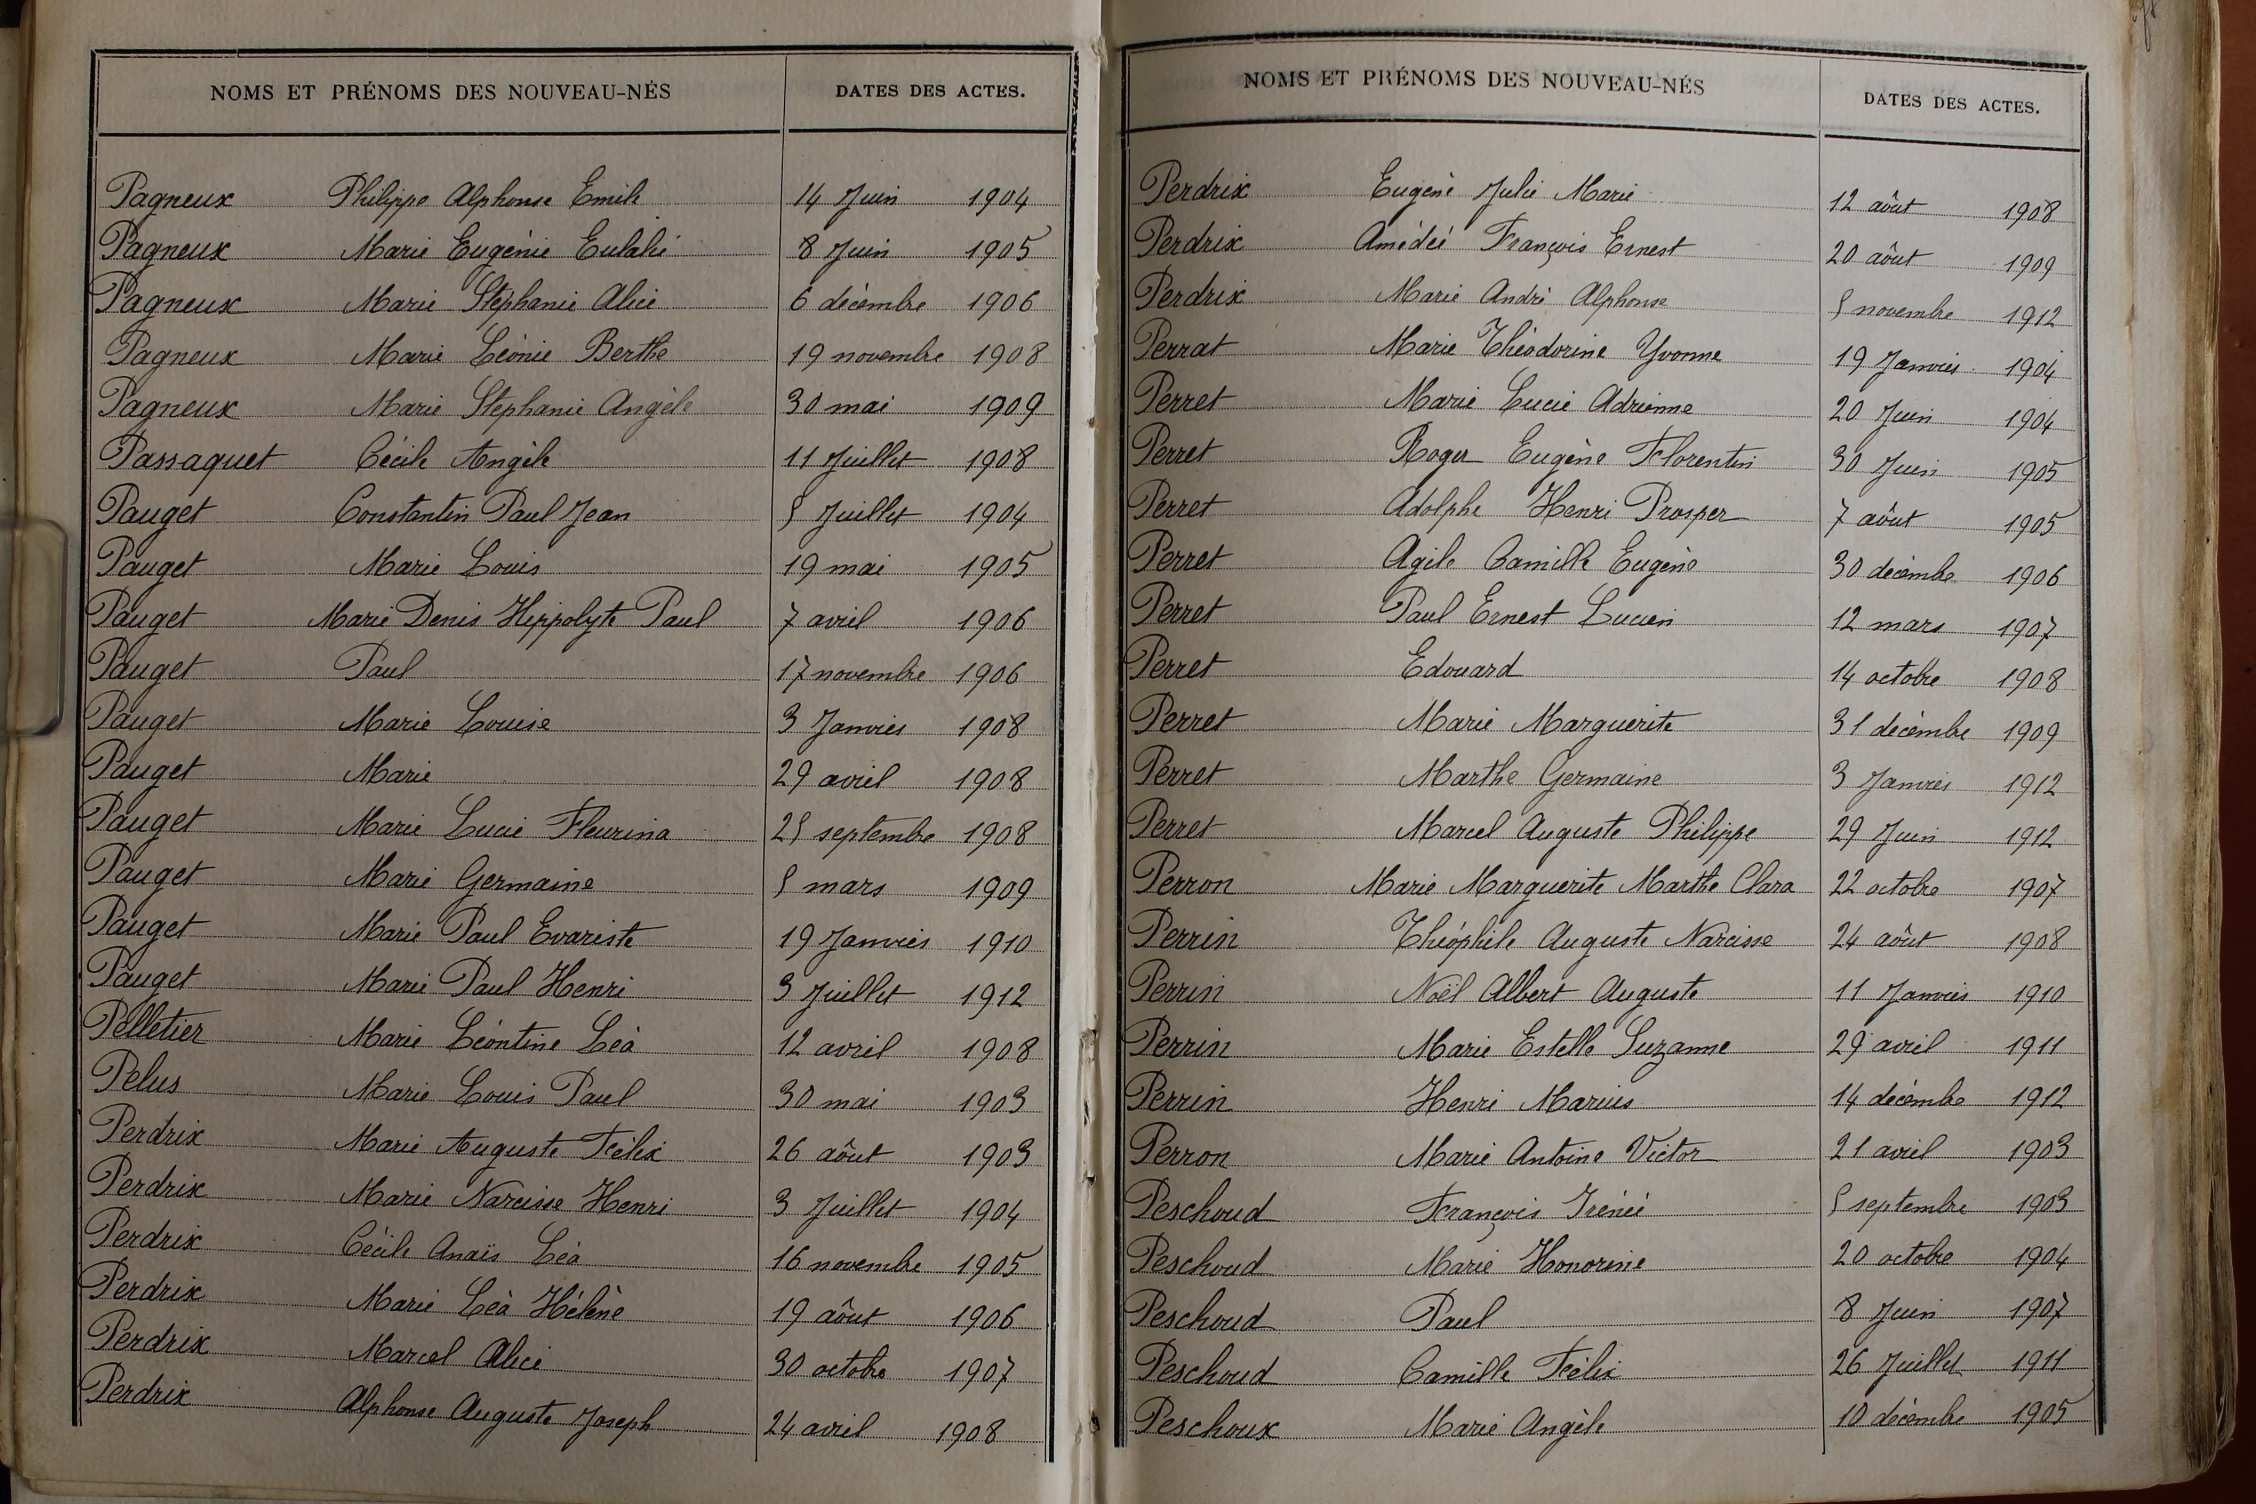 NOMS ET PRÉNOMS DES NOUVEAU-NÉS DATES DES ACTES.
Pagneux Philippe Alphonse Emile 14 Juin 1904
Pagneux Marie Eugénie Eulalie 8 Juin 1905
Pagneux Marie Stéphanie Alice 6 décembre 1906
Pagneux Marie Léonie Berthe 19 novembre 1908
Pagneux Marie Stéphanie Angèle 30 mai 1909
Passaquet Cécile Angèle 11 Juillet 1908
Pauget Constantin Paul Jean 5 Juillet 1904
Pauget Marie Louis 19 mai 1905
Pauget Marie Denis Hippolyte Paul 7 avril 1906
Pauget Paul 17 novembre 1906
Pauget Marie Louise 3 Janvier 1908
Pauget Marie 29 avril 1908
Pauget Marie Lucie Fleurina 25 septembre 1908
Pauget Marie Germaine 5 mars 1909
Pauget Marie Paul Evariste 19 Janvier 1910
Pauget Marie Paul Henri 3 Juillet 1912
Pelletier Marie Léontine Léa 12 avril 1908
Pelus Marie Louis Paul 30 mai 1903
Perdrix Marie Auguste Félix 26 aôut 1903
Perdrix Marie Narcisse Henri 3 Juillet 1904
Perdrix Cécile Anaïs Léa 16 novembre 1905
Perdrix Marie Léa Hélène 19 aôut 1906
Perdrix Marcel Alice 30 octobre 1907
Perdrix Alphonse Auguste Joseph 24 avril 1908
NOMS ET PRÉNOMS DES NOUVEAU-NÉS DATES DES ACTES.
Perdrix Eugène Julie Marie 12 aôut 1908
Perdrix Amédée François Ernest 20 aôut 1909
Perdrix Marie André Alphonse 5 novembre 1912
Perrat Marie Théodorine Yvonne 19 Janvier 1904
Perret Marie Lucie Adrienne 20 Juin 1904
Perret Roger Eugène Florentin 30 Juin 1905
Perret Adolphe Henri Prosper 7 aôut 1905
Perret Agile Camille Eugène 30 décembre 1906
Perret Paul Ernest Lucien 12 mars 1907
Perret Edouard 14 octobre 1908
Perret Marie Marguerite 31 décembre 1909
Perret Marthe Germaine 3 Janvier 1912
Perret Marcel Auguste Philippe 29 Juin 1912
Perron Marie Marguerite Marthe Clara 22 octobre 1907
Perrin Théophile Auguste Narcisse 24 aôut 1908
Perrin Noël Albert Auguste 11 Janvier 1910
Perrin Marie Estelle Suzanne 29 avril 1911
Perrin Henri Marius 14 décembre 1912
Perron Marie Antoine Victor 21 avril 1903
Peschoud François Irénée 5 septembre 1903
Peschoud Marie Honorine 20 octobre 1904
Peschoud Paul 8 Juin 1907
Peschoud Camille Félix 26 Juillet 1911
Peschoux Marie Angèle 10 décembre 1905